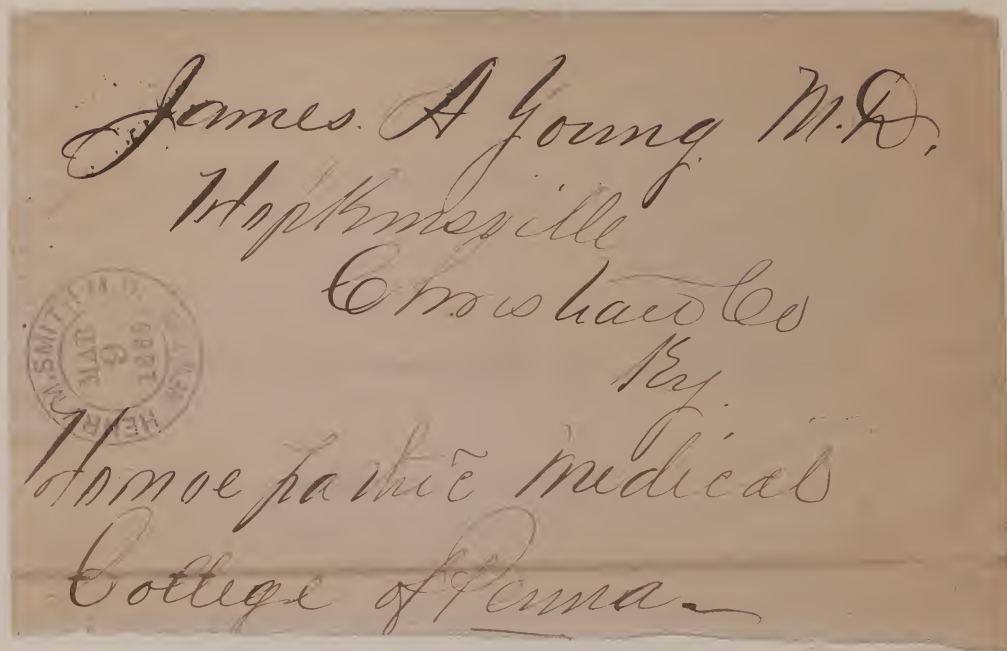 James. A Young M.D.
Hopkinsville
Christian Co
Ky
HENRY M. SMITH
MAR
9
1869
Homoepathic Medical
College of Penna